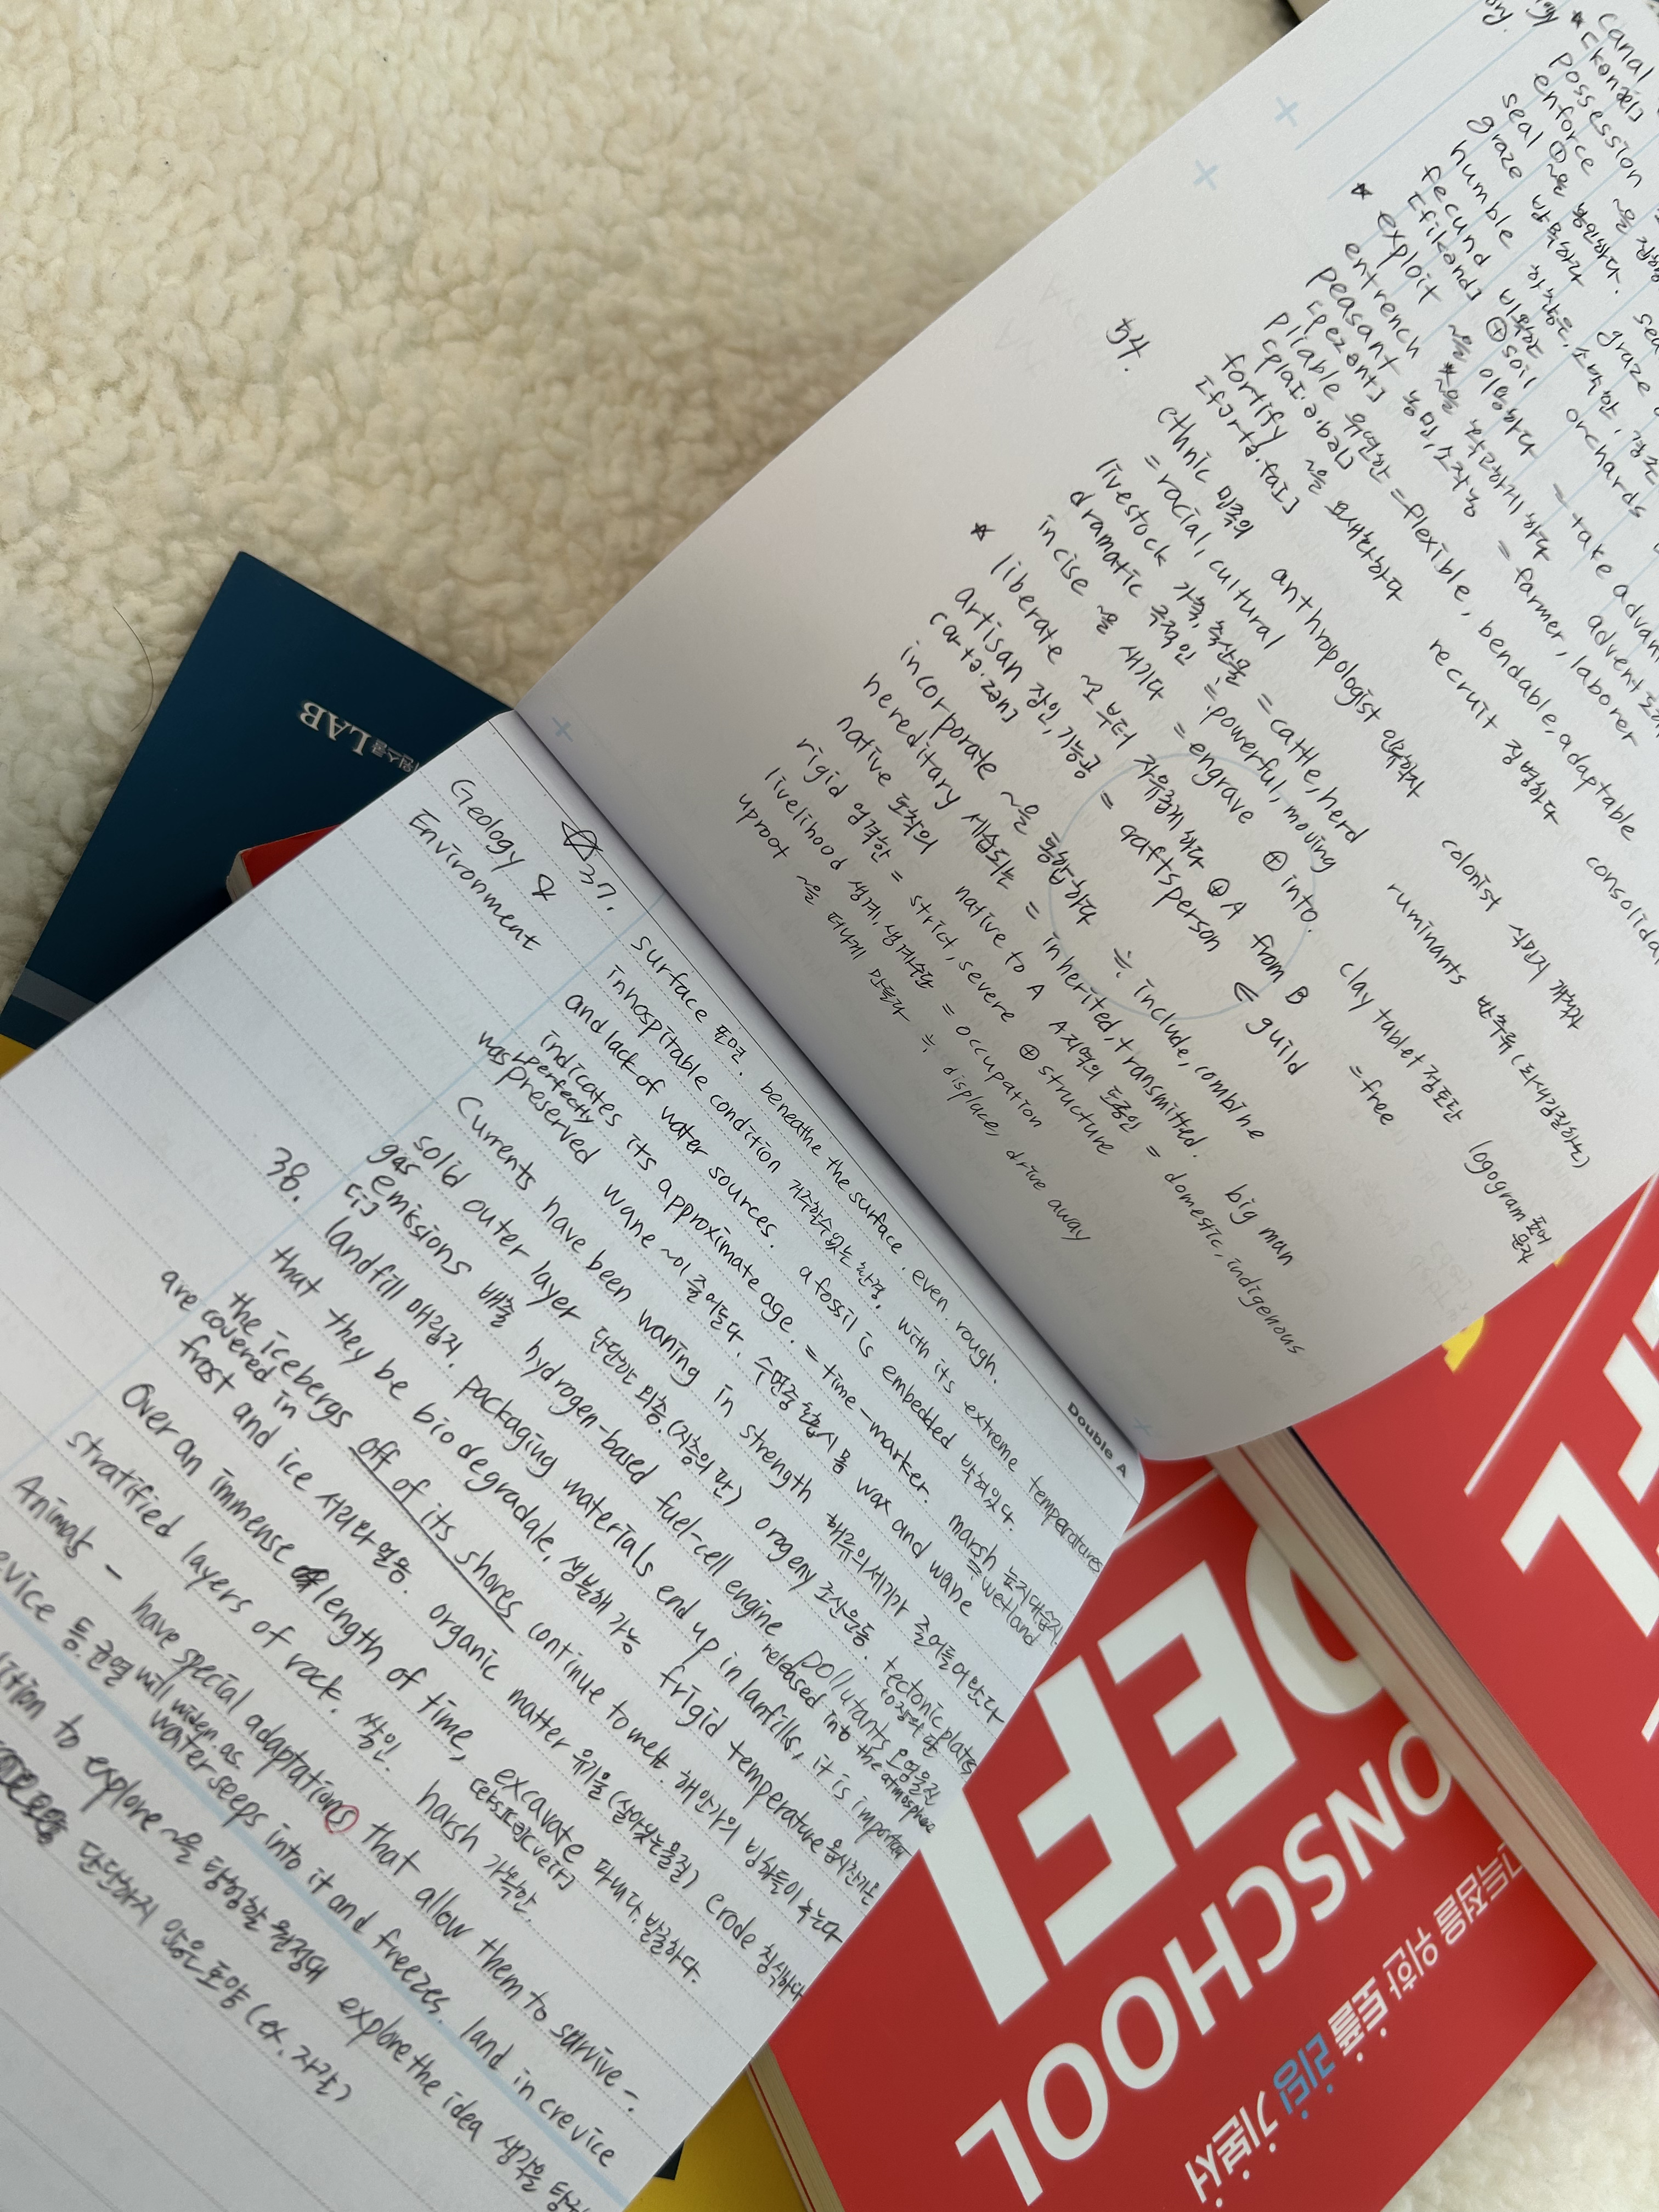 canal
★ [kənæl]
possession
enforce ~을
seal ⊕ ~을 봉인하다.
graze 방목하다 graze
humble 하찮은, 소박한, 겸손
fecund 비옥한 orchards
[fikənd] ⊕ soil
★ exploit ~을 이용하다 = take advan
entrench ~을 확고하게 하다 advent
peasant 농민, 소작농 = farmer, laborer
[pezənt]
pliable 유연한 = flexible, bendable, adaptable
[plaɪ.ə.bəl]
fortify ~을 요새화하다 recruit 징병하다 consolida
[fɔrtə.faɪ]
54.
ethnic 민족의 anthropologist 인류학자 colonist 식민지 개척자
= racial, cultural
livestock 가축, 축산물 = cattle, herd ruminants 반추류 (되새김질하는)
dramatic 극적인 ≒ powerful, moving
incise ~을 새기다 = engrave ⊕ into. clay tablet 점토판 logogram 표어 문자
★ liberate ~로부터 자유롭게 하다 ⊕ A from B = free
artisan 장인, 기능공 = craftsperson ∈ guild
[ar.tə.zən]
incorporate ~을 통합하다 ≒ include, combine big man
hereditary 세습되는 = inherited, transmitted.
native 토착의 native to A A지역의 토종인 = domestic, indigenous
rigid 엄격한 = strict, severe ⊕ structure
livelihood 생계, 생계수단 = occupation
uproot ~을 떠나게 만들다 ≒ displace, drive away
LAB
Double A
Geology &
Environment
☆37.
surface 표면. beneathe the surface. even. rough.
inhospitable condition 거주할 수 없는 환경. with its extreme temperatures
and lack of water sources. a fossil is embedded 박혀있다.
indicates its approximate age. = time-marker. marsh 늪지대 습지.
≒ wetland
perfectly
was preserved wane ~이 줄어들다. wax and wane
Currents have been waning in strength 해류의 세기가 줄어들어 왔다
solid outer layer 단단한 외층 (지층의 판) orogeny 조산운동. tectonic plates
gas emissions 배출 hydrogen-based fuel-cell engine pollutants 오염물질
released into the atmosphere
38. landfill 매립지. packaging materials end up in lanfills, it is important
that they be biodegradale. 생분해 가능 frigid temperature
the icebergs off of its shores continue to melt. 해안가의 빙하들이 녹는다
are covered in
frost and ice 서리와 얼음. organic matter 유기물 (살아있는 물질) erode 침식하다
Over an immense length of time, excavate 파내다, 발굴하다.
stratified layers of rock. harsh 가혹한.
Animals - have special adaptations that allow them to survive -
evice 틈. 균열 will widen as
water seeps into it and freezes. land in crevice
ition to explore ~을 탐험할 원정대 explore the idea 생각을
단단하지 않은 토양 (ex. 자갈)
DEFI
ONSCHOOL
고득점을 위한 토플 리딩 기본서